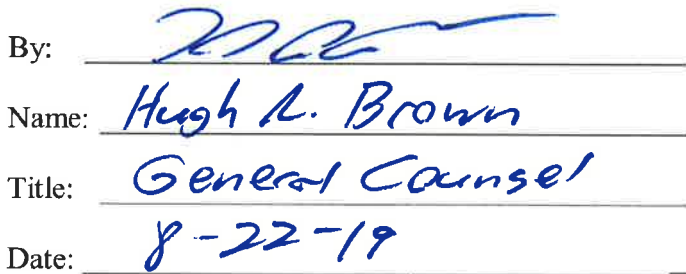 By:
Name: Hugh R. Brown
Title: General Counsel
Date: 8-22-19